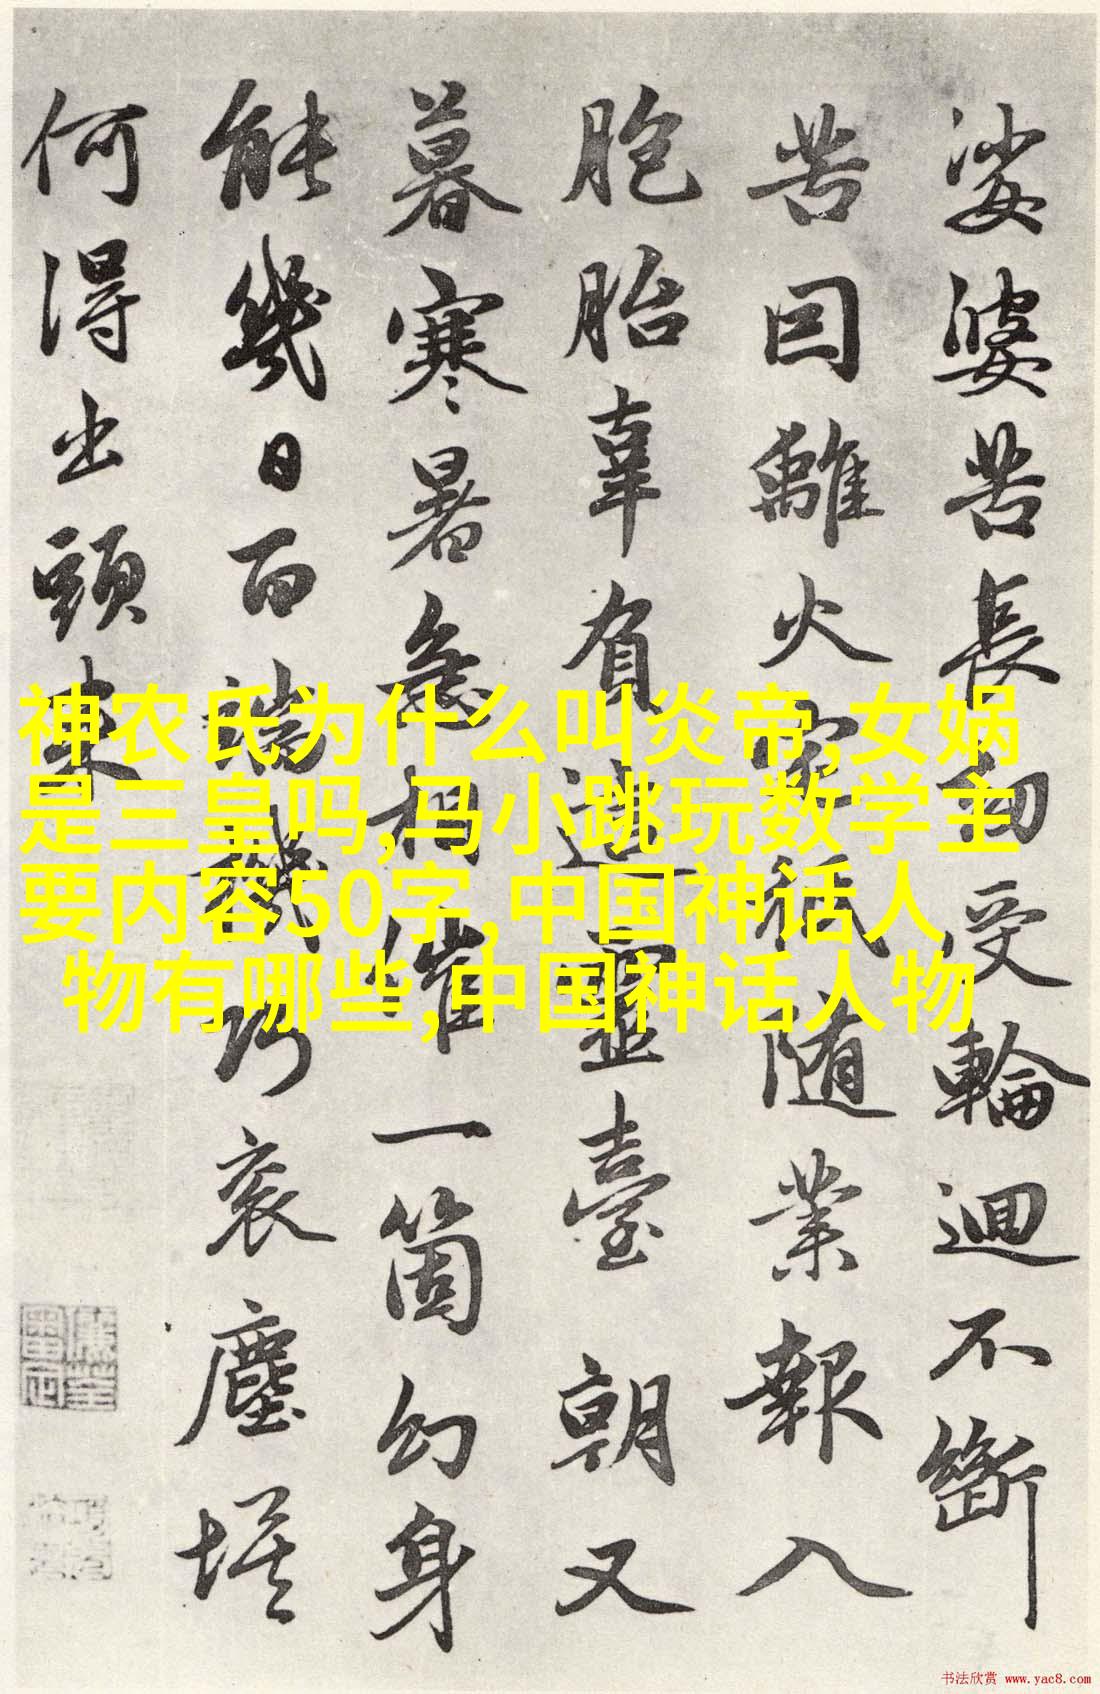 娑婆苦長劫受輪迴不斷
苦囙離火宅秪随業報入
胞胎辜負這靈臺朝又
暮寒暑急相催一箇幻身
能幾日百端機巧衮塵埃
何得出頭来
神农氏为什么叫炎帝,女娲
是三皇吗,马小跳玩数学主
要内容50字,中国神话人
物有哪些,中国神话人物
书法欣赏 www.yac8.com